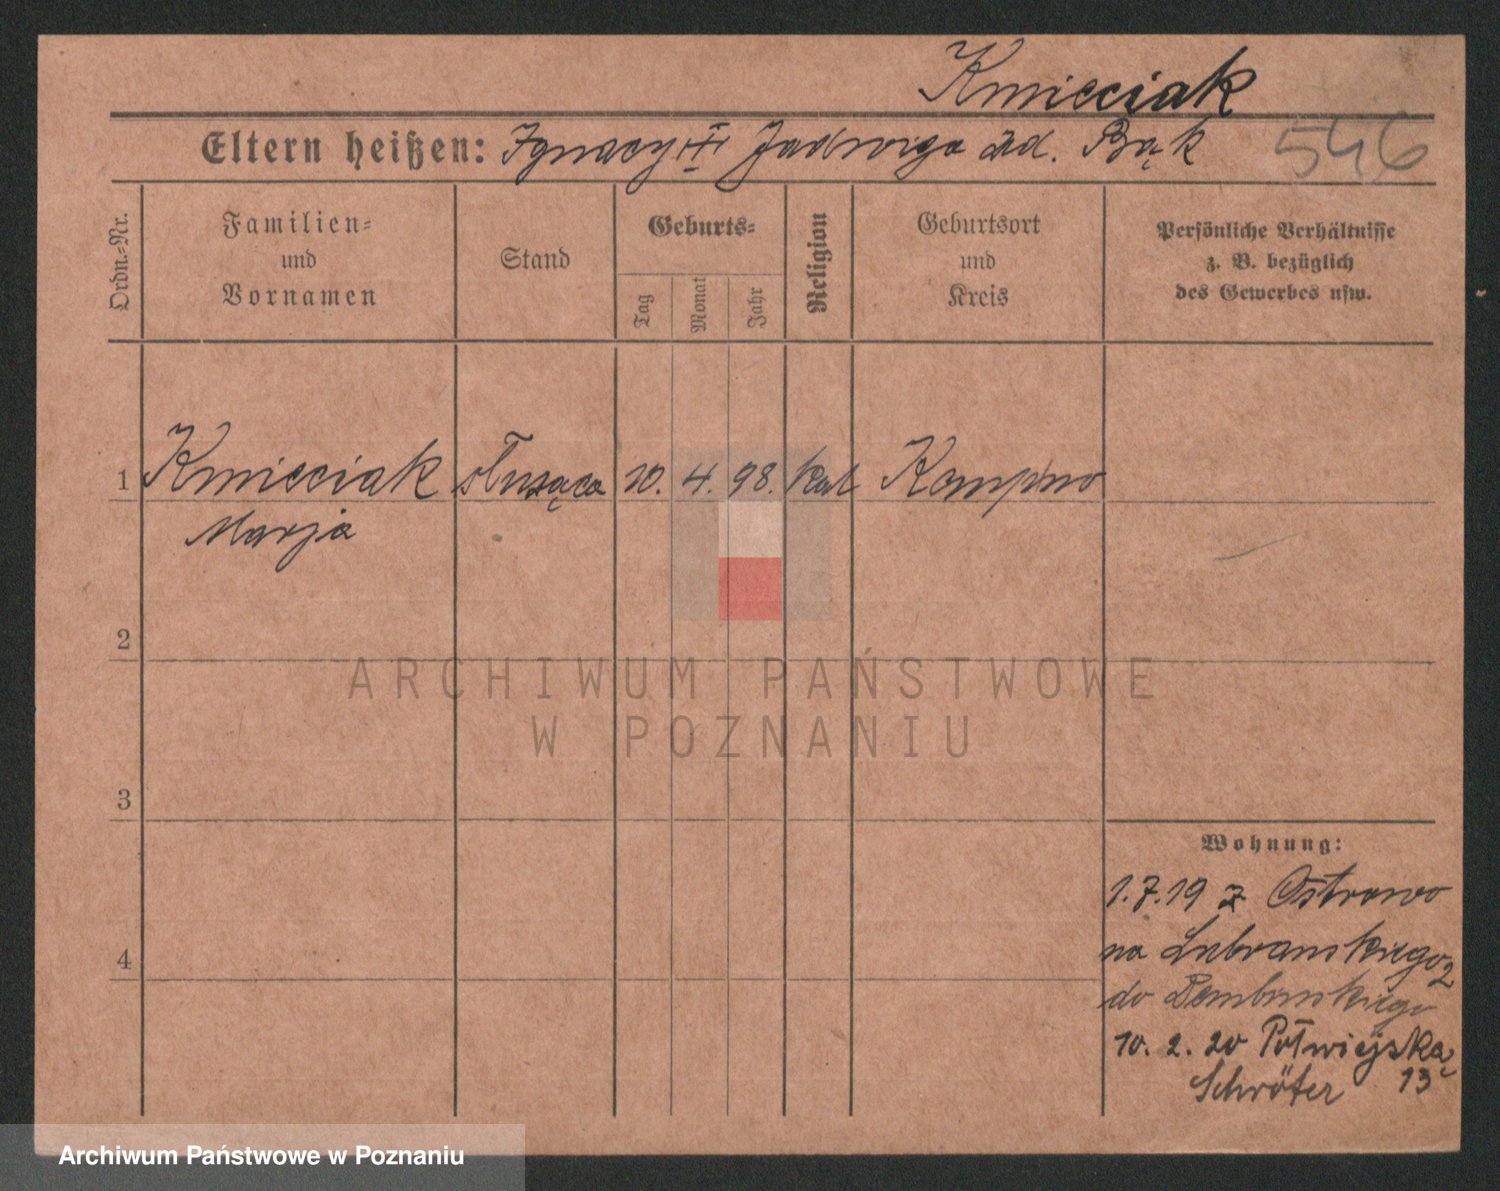 Kmieciak
Eltern heißen: Ignacy i Jadwiga zd. Bąk 546
Ordn.-Nr.
Familien-
und
Vornamen
Stand
Geburts-
Tag
Monat
Jahr
Religion
Geburtsort
und
Kreis
Persönliche Verhältnisse
z. B. bezüglich
des Gewerbes usw.
1 Kmieciak służąca 10. 4. 98. kat Kempno
Marja
2
ARCHIWUM PAŃSTWOWE
W POZNANIU
3
Wohnung:
1.7.19 z Ostrowo
na Lubranskiego 2
4
do
10. 2. 20 Półwiejską
Schröter 13
Archiwum Państwowe w Poznaniu